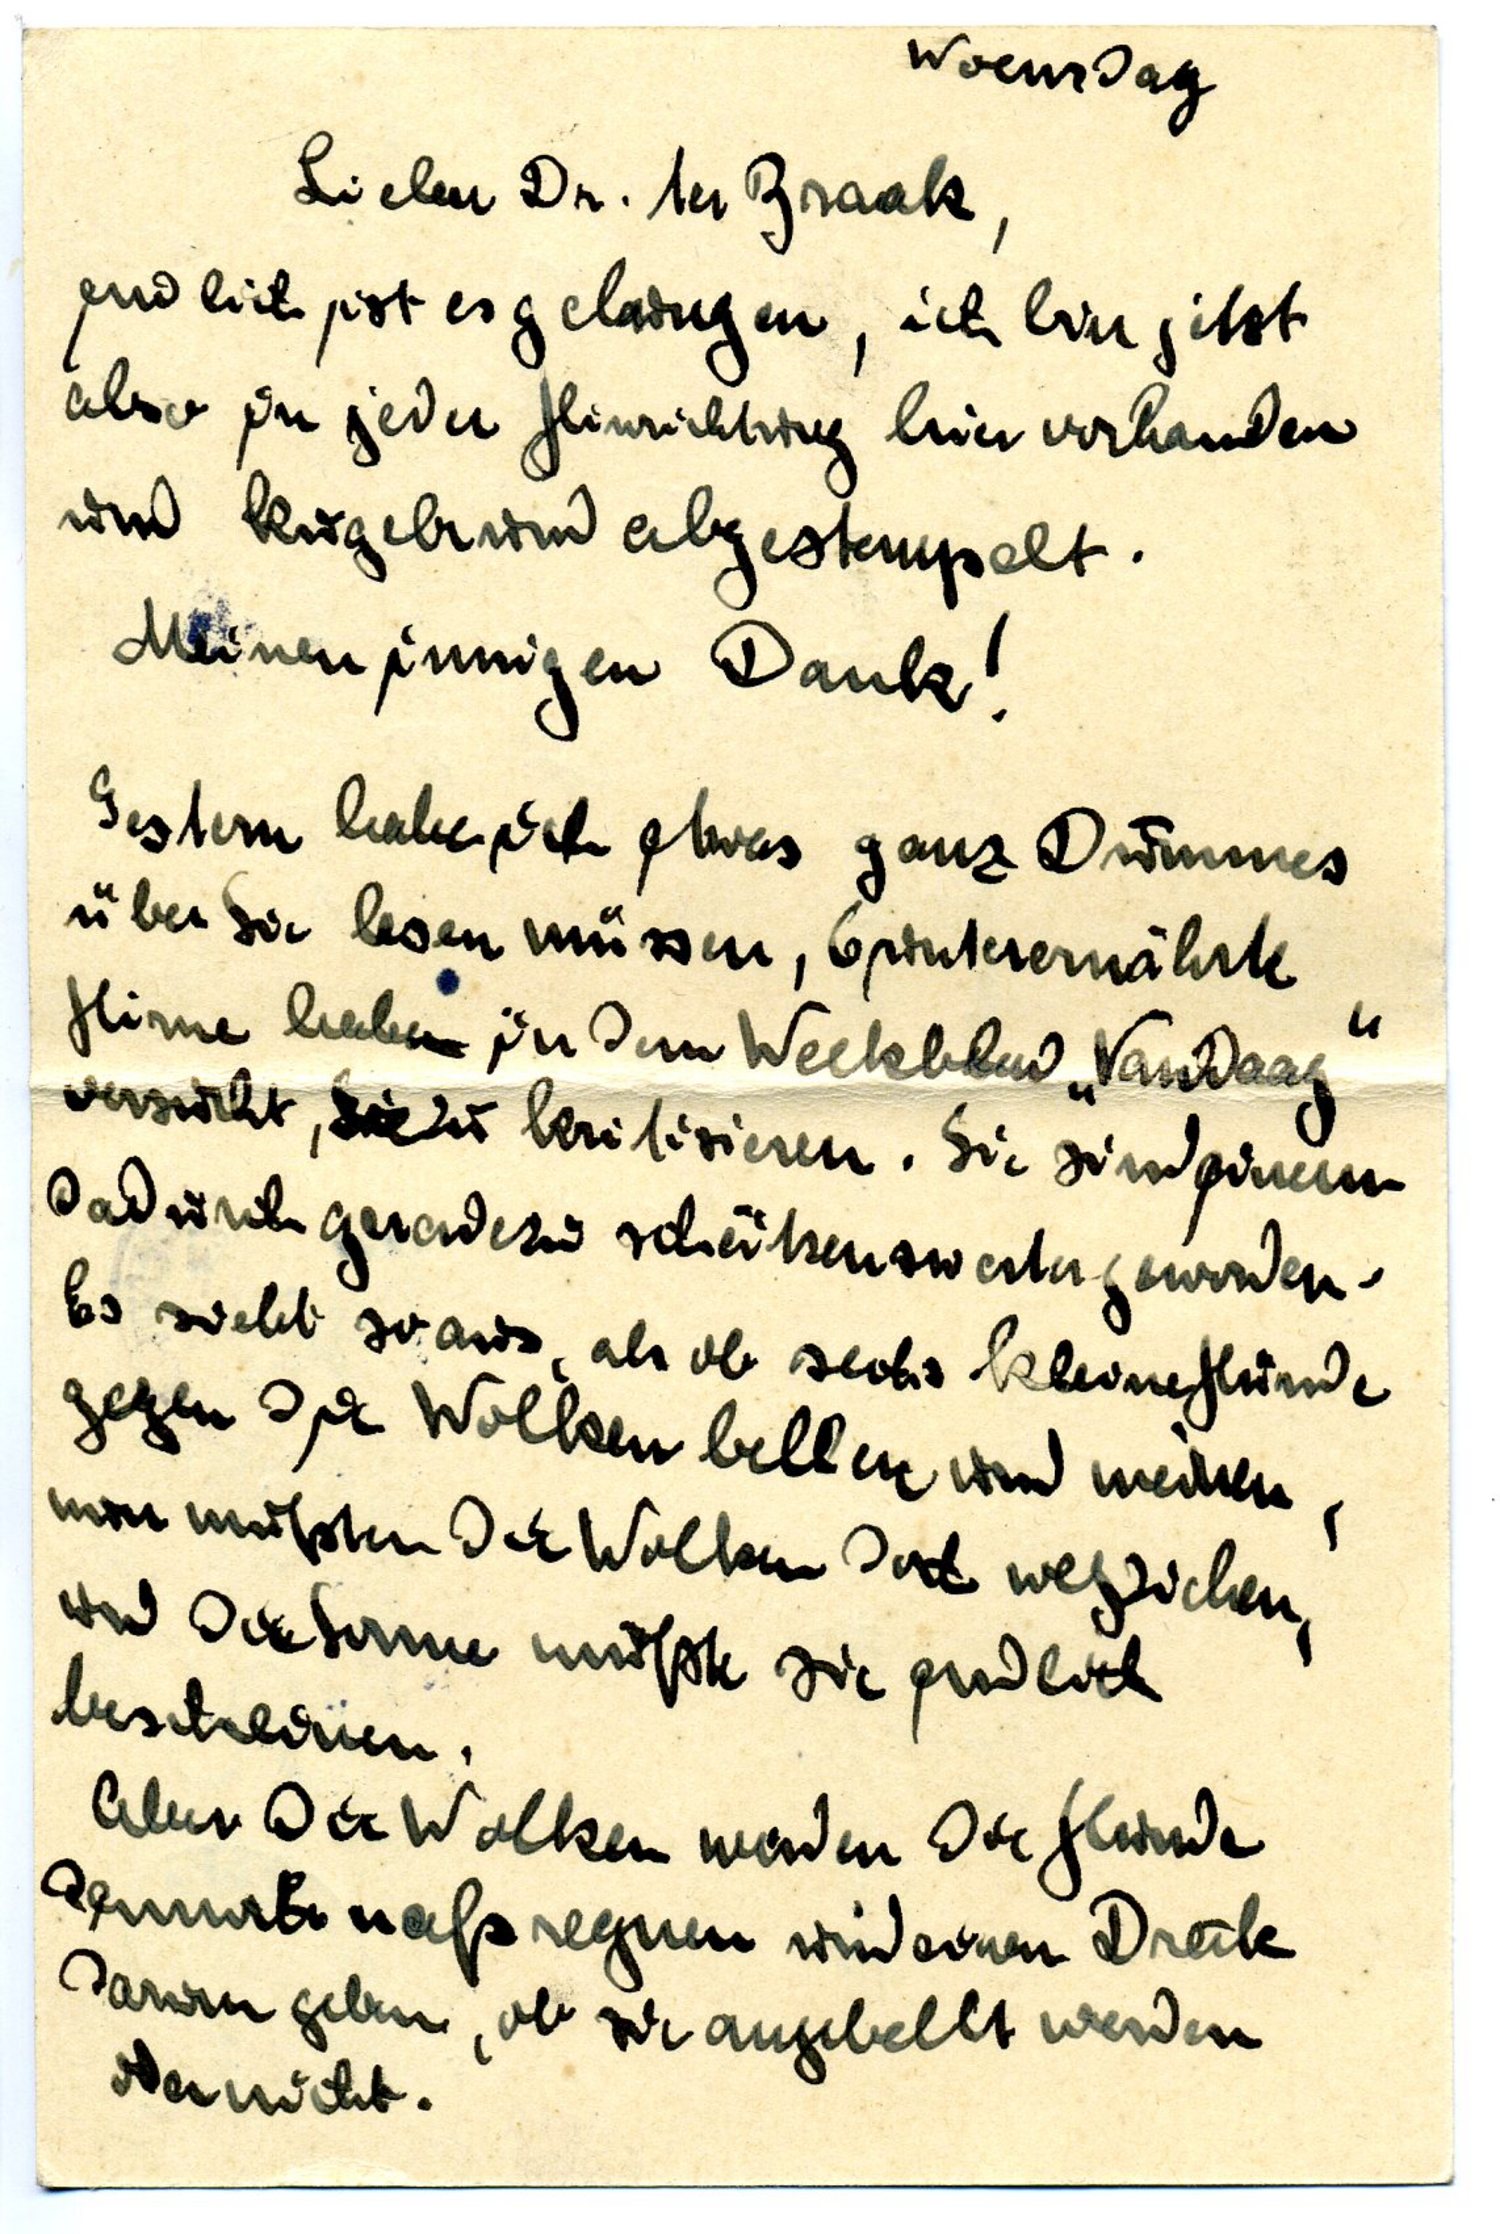 Woensdag
Lieber Dr. ter Braak,
endlich ist es gelungen, ich bin jetzt
also in jeder Hinrichtung hier vorhanden
und kugelrund abgestempelt.
Meinen innigen Dank!
Gestern habe ich etwas ganz Dummes
über Sie lesen müssen, 6 unterernährte
Hirne haben in dem Weekblad „Vandaag"
versucht, Sie zu kritisieren. Sie sind einem
dadurch geradezu schätzenswerter geworden.
Es sieht so aus, als ob sechs kleine Hunde
gegen die Wolken bellen und meinen,
nun müßten die Wolken dort wegziehen,
und die Sonne müßte sie endlich
bescheinen.
Aber die Wolken werden die Hunde
dennoch naß regnen und einen Dreck
darum geben, ob sie angebellt werden
oder nicht.